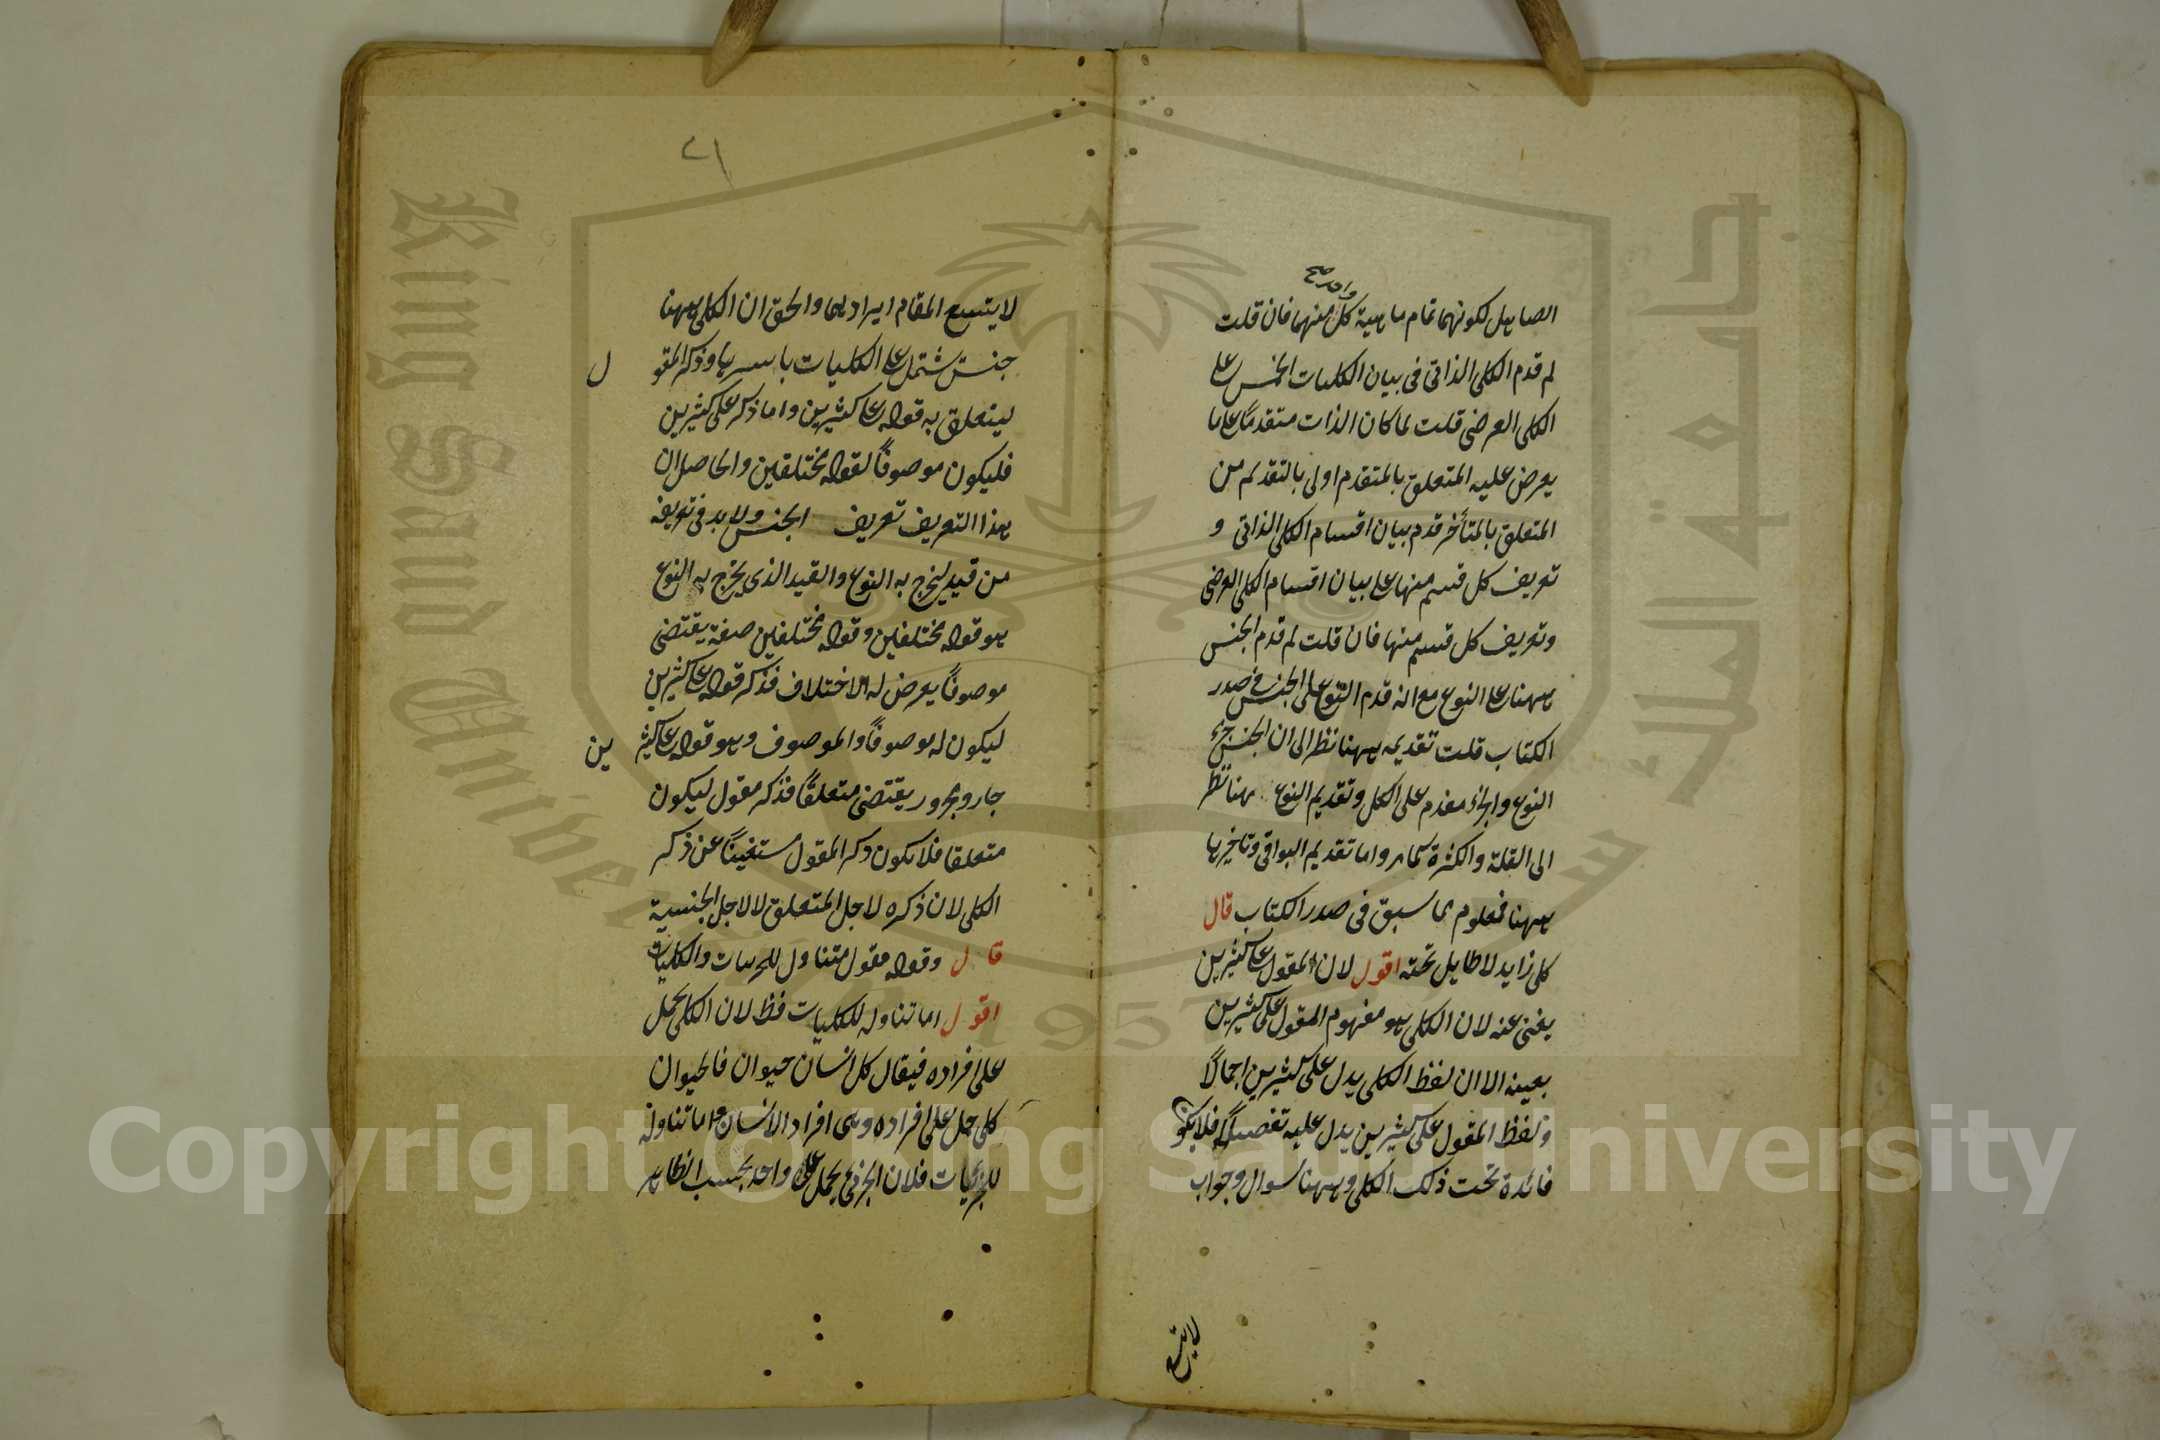 واحد صح
الصاهل لكونهما تمام ماهية كل منهما فان قلت
لم قدم الكلى الذاتى فى بيان الكليات الخمس على
الكلى العرضى قلت لما كان الذات متقدماً على ما
يعرض عليه المتعلق بالمتقدم اولى بالتقديم من
المتعلق بالمتأخر قدم بيان اقسام الكلى الذاتى و
تعريف كل قسم منها على بيان اقسام الكلى العرضى
وتعريف كل قسم منها فان قلت لم قدم الجنس
ههنا على النوع مع انه قدم النوع على الجنس فى صدر
الكتاب قلت تقديمه ههنا نظر الى ان الجنس جزء
النوع والجزء مقدم على الكل وتقديم النوع هنا نظر
الى القلة والكثرة كما مر واما تقديم البواقى وتاخيرها
ههنا فمعلوم مما سبق فى صدر الكتاب قال
كلى زايد لا طايل تحته اقول لان المقول على كثيرين
يغنى عنه لان الكلى هو مفهوم المقول على كثيرين
بعينه الا ان لفظ الكلى يدل على كثيرين اجمالاً
ولفظ المقول على كثيرين يدل عليه تفصيلاً فلا يكون
فائدة تحت ذلك الكلى وههنا سوال وجواب
لا يتسع
٢١
لا يتسع المقام ايرادهما والحق ان الكلى ههنا
جنس شتمل على الكليات باسرها وذكر المقو ل
ليتعلق به قوله على كثيرين واما ذكر على كثيرين
فليكون موصوفاً لقوله مختلفين والحاصل ان
هذا التعريف تعريف الجنس ولا بد فى تعريفه
من قيد ليخرج به النوع والقيد الذى يخرج به النوع
هو قوله مختلفين وقوله مختلفين صفة يقتضى
موصوفاً يعرض له الاختلاف فذكر قوله على كثيرين
ليكون له موصوفاً والموصوف وهو قوله على كثير ين
جار ومجرور يقتضى متعلقاً فذكر مقول ليكون
متعلقا فلا يكون ذكر المقول مستغنياً عن ذكر
الكلى لان ذكره لاجل المتعلق لا لاجل الجنسية
قال وقوله مقول متناول للجزئيات والكليات
اقول اما تناوله للكليات فظ لان الكلى يحمل
على افراده فيقال كل انسان حيوان فالحيوان
كلى حمل على افراده وهى افراد الانسان واما تناوله
للجزئيات فلان الجزئى يحمل على واحد بحسب الظاهر
Copyright © King Saud University
King Saud University
جامعة الملك سعود
1957